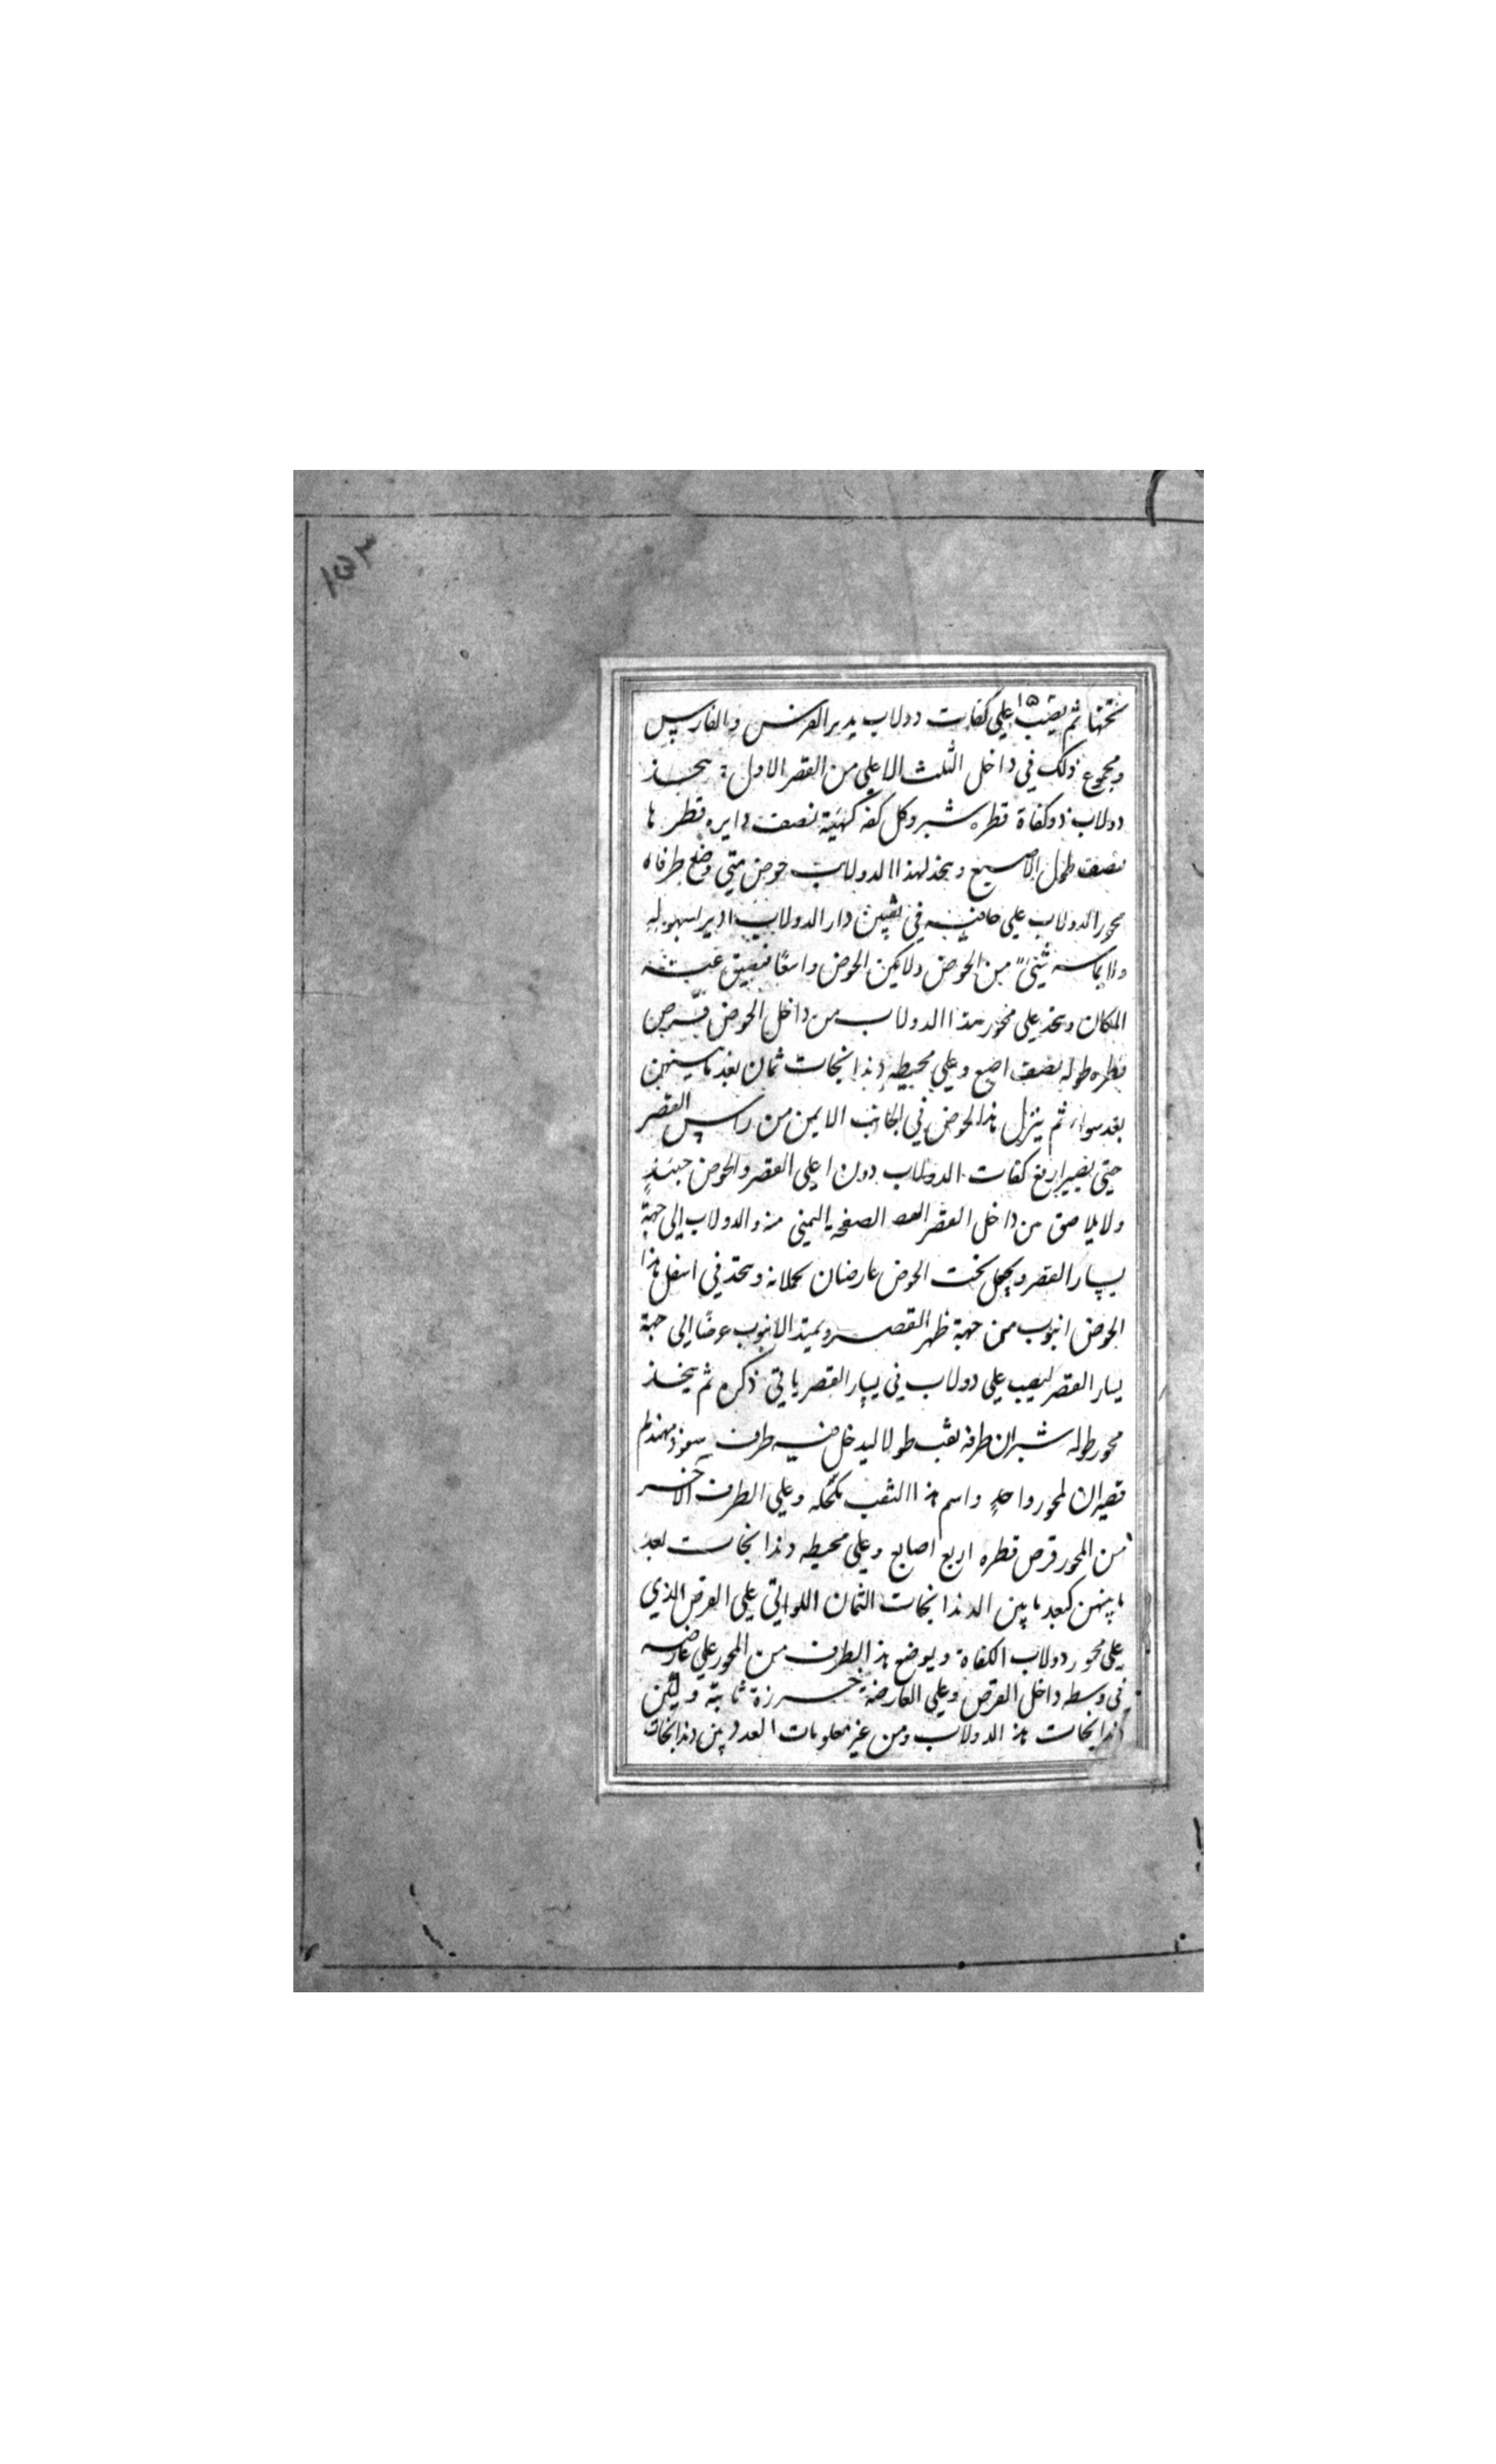 ١٥٣
تحتها ثم يصب ١٥ على كفات دولاب يدير الفرس والفارس
ومجموع ذلك في داخل الثلث الاعلى من القصر الاول يتخذ
دولاب ذو كفاة قطره شبر وكل كفه كهيئة نصف دايره قطرها
نصف طول الاصبع ويتخذ لهذا الدولاب حوض متى وضع طرفاه
محور الدولاب على حافتيه في ثقبين دار الدولاب اذا دير لسهوله
ولا يماسه شيئ من الحوض ولا يكن الحوض واسعًا فيضيق عنه
المكان ويتخذ على محور هذا الدولاب من داخل الحوض قرص
قطره طوله نصف اصبع وعلى محيطه دندانجات ثمان بعد ما بينهن
بعد سواء ثم ينزل هذا الحوض في الجانب الايمن من راس القصر
حتى يصير اربع كفات الدولاب دون اعلى القصر والحوض حينئذٍ
ولا يلاصق من داخل القصر الصفحه اليمنى منه والدولاب الى جهة
يسار القصر ويجعل تحت الحوض عارضان تحملانه ويتخذ في اسفل هذا
الحوض انبوب من جهة ظهر القصر ويمتد الانبوب عرضًا الى جهة
يسار القصر ليصب على دولاب في يسار القصر ياتي ذكره ثم يتخذ
محور طوله شبران طرفه ثقب طولا ليدخل فيه طرف سفود مهندم
قصيران لمحور واحدٍ واسم هذا الثقب مكحله وعلى الطرف الآخر
من المحور قرص قطره اربع اصابع وعلى محيطه دندانجات بعد
ما بينهن كبعد ما بين الدندانجات الثمان اللواتي على القرص الذي
على محور دولاب الكفاة ويوضع هذا الطرف من المحور على عارضه
في وسطه داخل القرص وعلى العارضة خرزة ثابته وليكن
دندانجات هذا الدولاب ومن غير معلومات العدد بين دندانجات